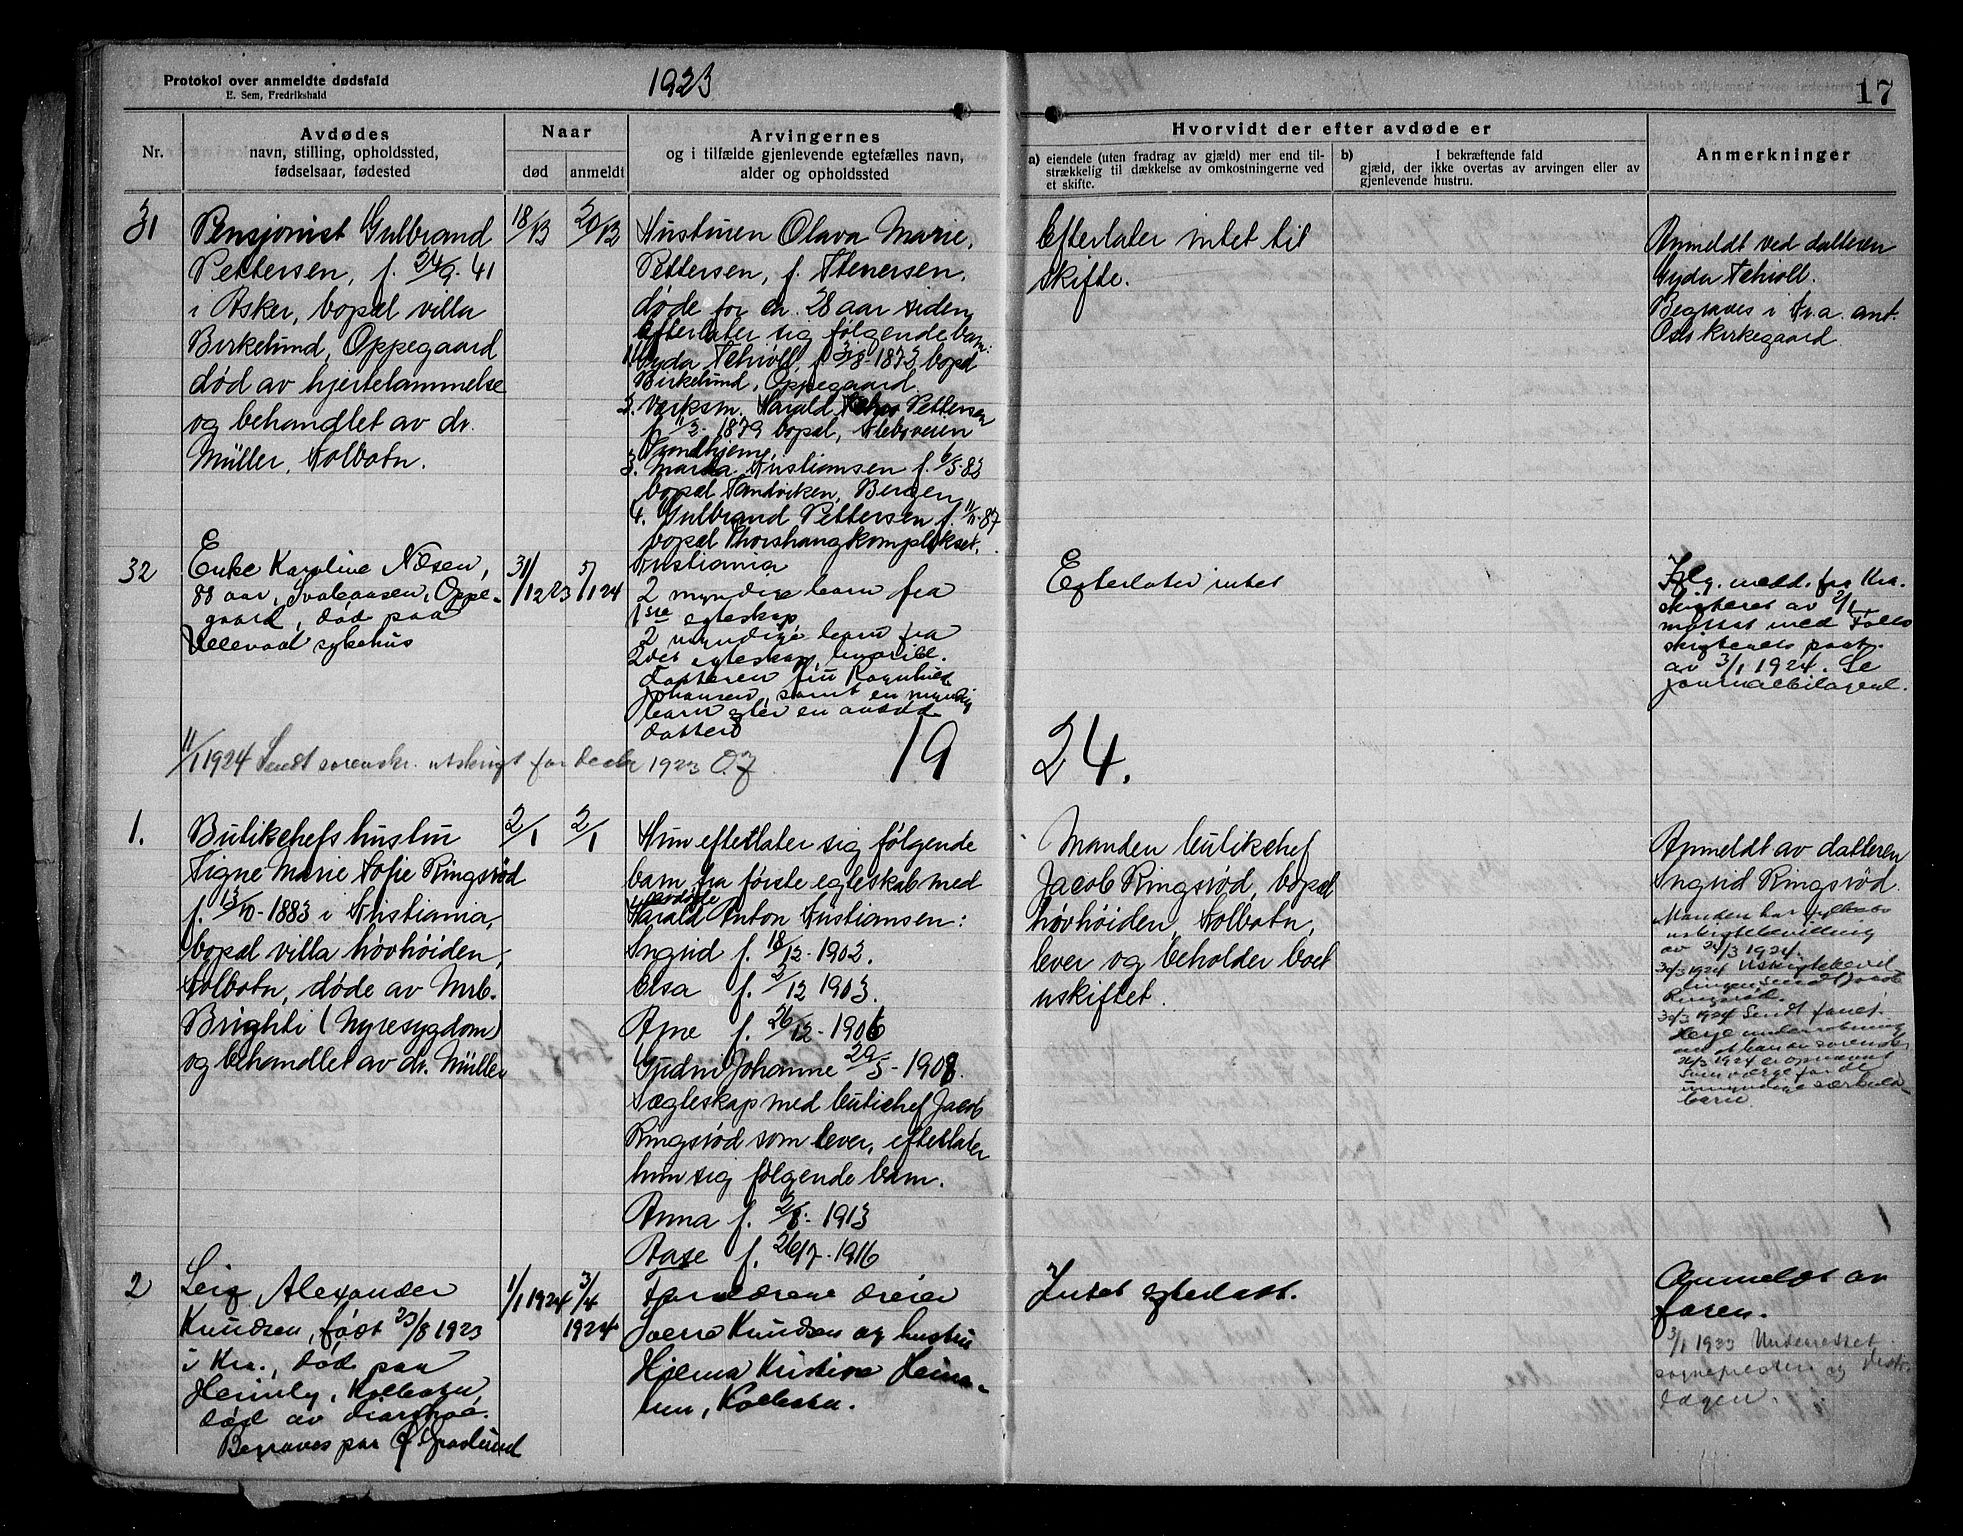 Protokol over anmeldte dødsfald
E. Sem, Fredrikshald
1923
17
Nr.
Avdødes
navn, stilling, opholdssted,
fødselsaar, fødested
Naar
død
anmeldt
Arvingernes
og i tilfælde gjenlevende egtefælles navn,
alder og opholdssted
Hvorvidt der efter avdøde er
a) eiendele (uten fradrag av gjæld) mer end til-
strækkelig til dækkelse av omkostningerne ved
et skifte.
b) I bekræftende fald
gjæld, der ikke overtas av arvingen eller av
gjenlevende hustru.
Anmerkninger
31
Pensjonist Gulbrand
Pettersen, f. 24/9-41
i Asker, bopæl villa
Birkelund, Oppegaard
død av hjertelammelse
og behandlet av dr.
Müller, Kolbotn.
18/12
20/12
Hustruen Olava Marie
Pettersen, f. Stenersen,
døde for ca. 28 aar siden
Efterlater sig følgende barn:
1. Gyda Schiøll, f. 1873 bopæl
Birkelund, Oppegaard
2. Verksm. Harald Pettersen
f. 11/2-1879 bopæl,
3. Marda Kristiansen f. 6/5-83
bopæl Sandviken, Bergen
4. Gulbrand Pettersen f. 11/11-87
bopæl Thorshaugkomplekset,
Kristiania
Efterlater intet til
skifte.
Anmeldt ved datteren
Gyda Schiøll.
Begraves i Kr.a. ant.
Oslo kirkegaard.
32
Enke Karoline Næsen,
88 aar, Svaleaasen, Oppe-
gaard, død paa
Ullevaal sykehus
31/12 23
5/1 24
2 myndige barn fra
1ste egteskap,
2 myndige barn fra
2det egteskap, hvorav
datteren fru Ragnhild
Johansen, samt en myndig
barn efter en avdød
datter
Efterlater intet
Iflg. medd. fra Kra.
skifteret av 2/1
mottat med Follo
skifterets paat.
av 3/1 1924. Se
journalbilagene.
11/1 1924 Sendt sorenskr. utskrift for decbr 1923 O.J.
19 24.
1.
Butikchefs hustru
Signe Marie Sofie Ringsrød
f. 13/10-1883 i Kristiania,
bopæl villa Høvhøiden,
Kolbotn, døde av Mrb.
Brighti (nyresygdom)
og behandlet av dr. Müller
2/1
2/1
Hun efterlater sig følgende
barn fra første egteskab med
avdøde
Harald Anton Kristiansen:
Ingrid f. 18/12-1902.
Elsa f. 2/12 1903.
Arne f. 26/12-1906
Gudrun Johanne 29/5-1908.
I egteskap med butikchef Jacob
Ringsrød som lever, efterlater
hun sig følgende barn.
Anna f. 2/8-1913
Aase f. 26/7-1916
Manden butikchef
Jacob Ringsrød, bopæl
Høvhøiden, Kolbotn,
lever og beholder boet
uskiftet.
Anmeldt av datteren
Ingrid Ringsrød.
Manden har
uskiftebevilling
av 24/3 1924.
1924 Uskiftebevil-
lingen sendt Jacob
Ringsrød.
1924 Sendt
underretning
om at han av sorenskr.
26/3 1924 er opnævnt
som værge for de
umyndige særkuld-
barn
2
Leif Alexander
Knudsen, født 23/8 1923
i Kra., død paa
Heimly, Kolbotn,
død av
Begraves paa
1/1 1924
3/4
1924
Forældrene dreier
Knudsen og hustru
Hjelma Kristine
Kolbotn.
Intet efterlatt.
Anmeldt av
faren.
3/1 1923 Underrettet
sognepresten og